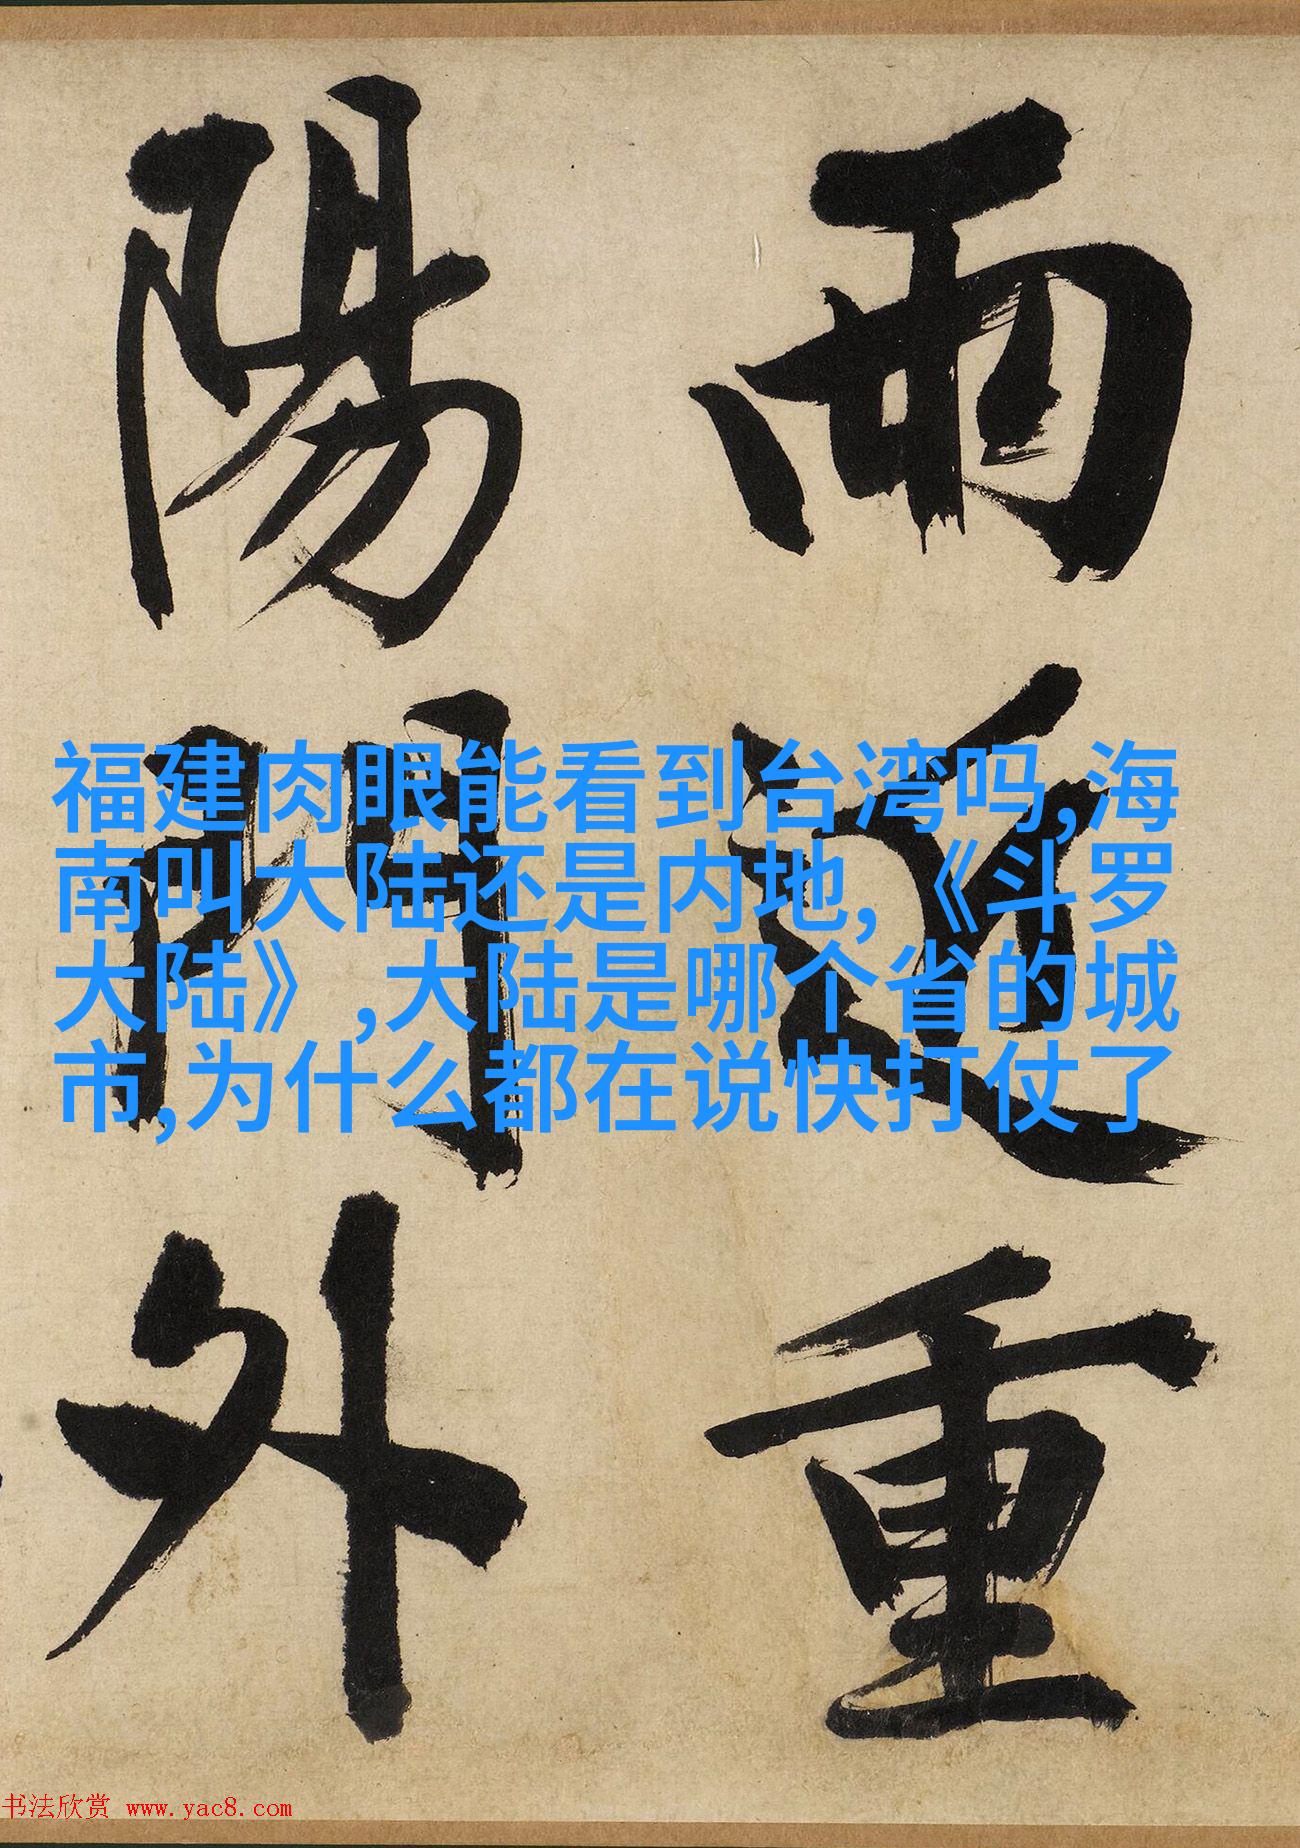 雨近重
陽門外
福建肉眼能看到台湾吗,海
南叫大陆还是内地,《斗罗
大陆》,大陆是哪个省的城
市,为什么都在说快打仗了
书法欣赏 www.yac8.com